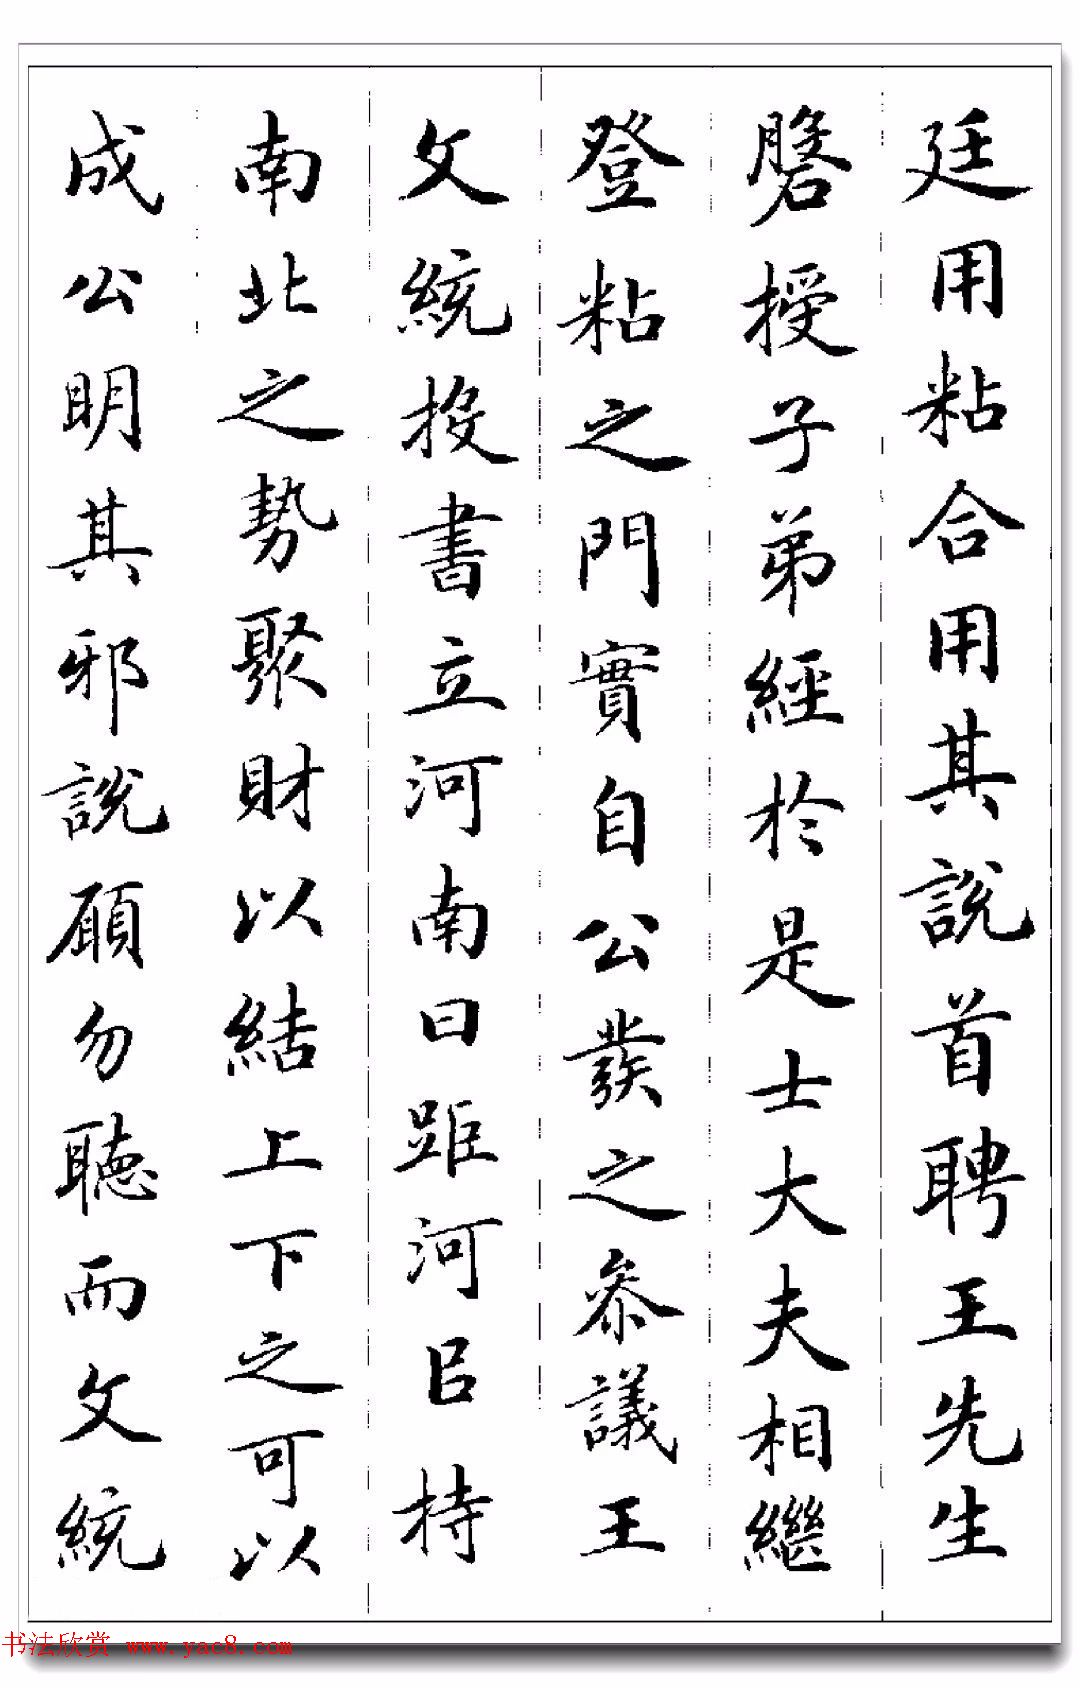 廷用粘合用其說首聘王先生
磐授子弟經於是士大夫相繼
登粘之門實自公發之參議王
文統投書立河南曰距河以持
南北之勢聚財以結上下之可以
成公明其邪說願勿聽而文統
书法欣赏 www.yac8.com